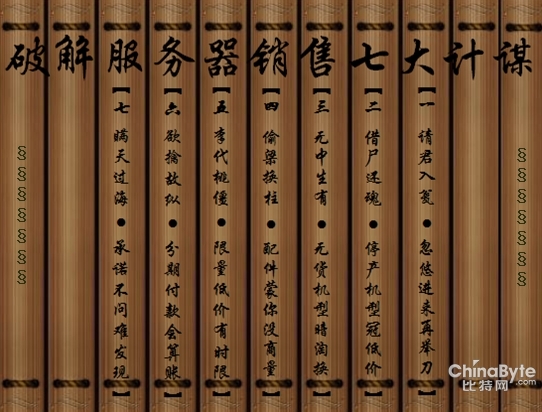 破解服务器销售七大计谋
【一】请君入瓮●忽悠进来再举刀【
【二】借尸还魂●停产机型冠低价【
【三】无中生有●无货机型暗淘换【
【四】偷梁换柱●配件蒙你没商量【
【五】李代桃僵●限量低价有时限【
【六】欲擒故纵●分期付款会算账【
【七】瞒天过海●承诺不问难发现【
§§§§§§§
§§§§§§§
ChinaByte
比特网